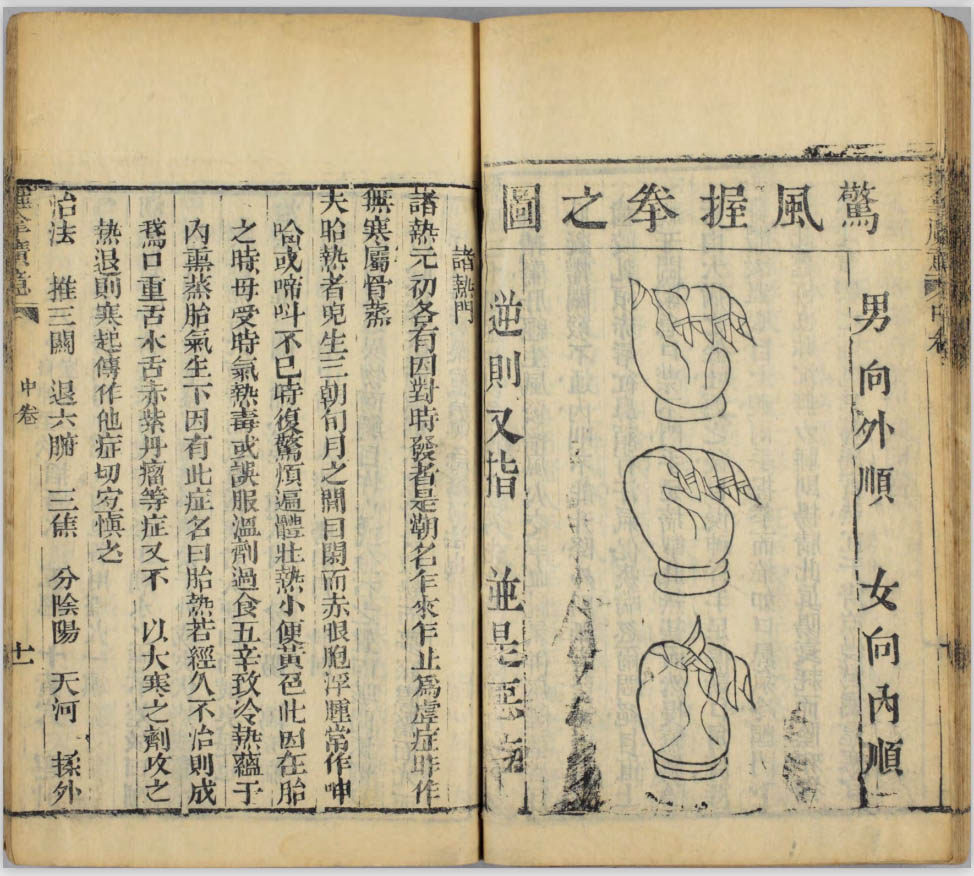 驚風握拳之圖
男向外順 女向內順
逆則又指 並是惡
諸熱門
諸熱元初各有因對時發者是朝名乍來乍止爲虛症昨作
無寒屬骨蒸
夫胎熱者兒生三朝旬月之間目閉而赤眼胞浮腫常作呻
唅或啼叫不已時復驚煩遍體壯熱小便黃色此因在胎
之時母受時氣熱毒或誤服溫劑過食五辛致冷熱蘊于
內熏蒸胎氣生下因有此症名曰胎熱若經久不治則成
鵞口重舌木舌赤紫丹瘤等症又不 以大寒之劑攻之
熱退則寒起傳作他症切宜愼之
治法 推三關 退六腑 三焦 分陰陽 天河 揉外
中卷 十一